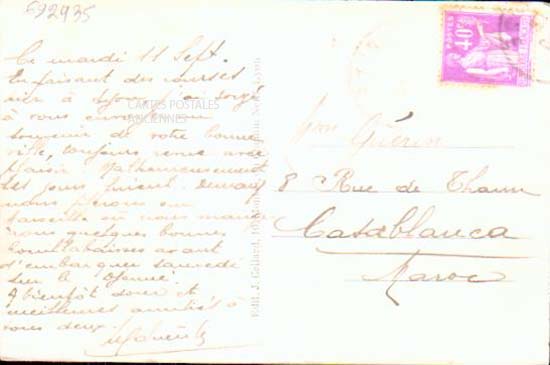 592935
Ce mardi 11 Sept.
En faisant des courses
hier à j'ai songé
à vous envoyer un
souvenir de votre bonne
ville, toujours revue avec
plaisir. Malheureusement
les jours fuient. Demain
nous serons sur
Marseille où nous mange-
rons quelques bonnes
bouillabaisses avant
d'embarquer samedi
sur le
A bientôt donc et
meilleures amitiés à
vous deux.
CARTES POSTALES
ANCIENNES
Edit. J. Gabard
POSTES
40c
Guérin
8 Rue de Thann
Casablanca
Maroc